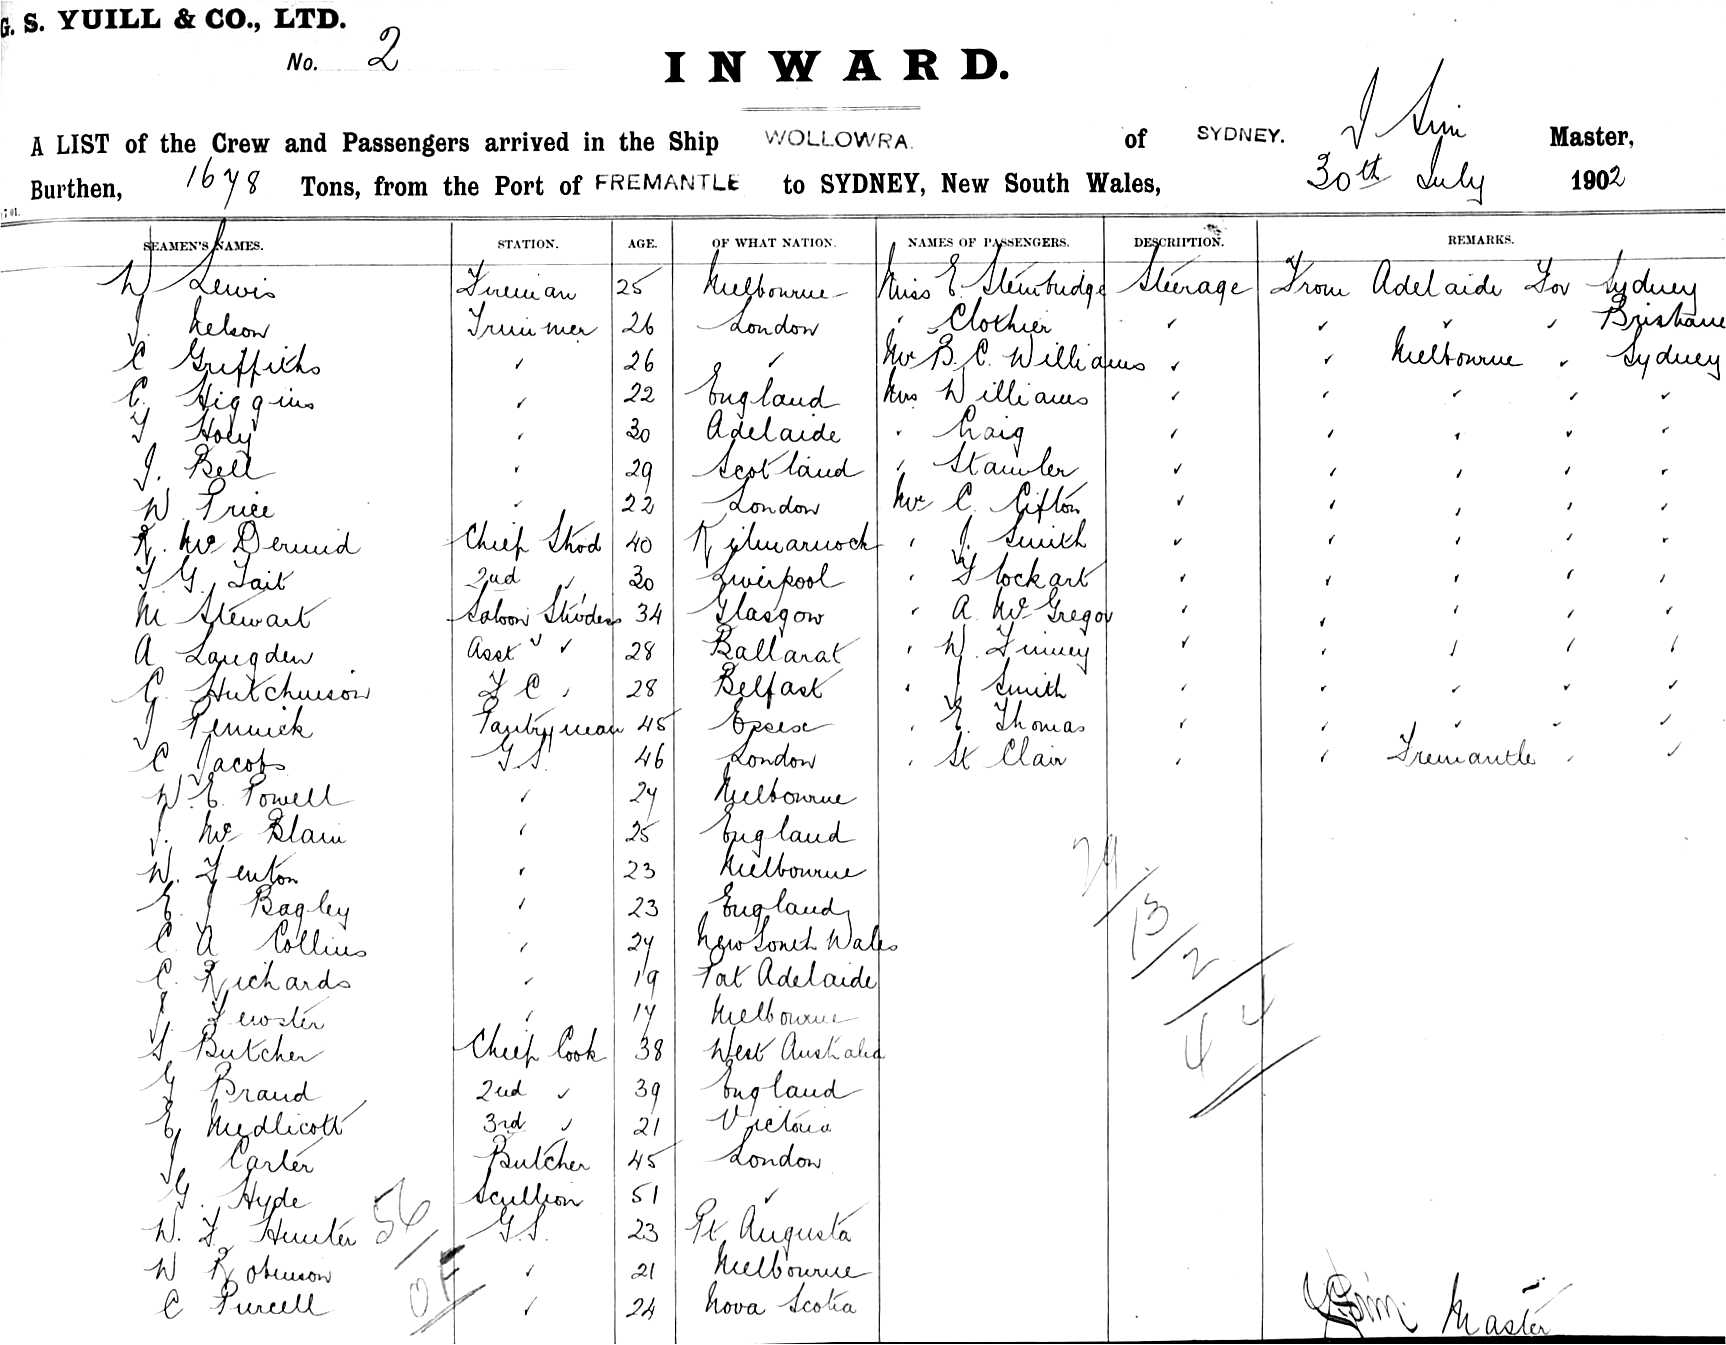 G. S. YUILL & CO., LTD.
No. 2
INWARD.
A LIST of the Crew and Passengers arrived in the Ship WOLLOWRA. of SYDNEY. J Sim Master,
Burthen, 1678 Tons, from the Port of FREMANTLE to SYDNEY, New South Wales, 30th July 1902
SEAMEN'S NAMES. STATION. AGE. OF WHAT NATION. NAMES OF PASSENGERS. DESCRIPTION. REMARKS.
W Lewis Fireman 25 Melbourne Miss E. Stembridge Steerage From Adelaide For Sydney
J. Nelson Trimmer 26 London " Clothier " " " " Brisbane
C Griffiths " 26 " Mr B. C. Williams " " Melbourne " Sydney
C. Higgins " 22 England Mrs Williams " " " " "
T Hoey " 30 Adelaide " Craig " " " " "
J. Bell " 29 Scotland " Stamler " " " " "
W Price " 22 London Mr C. Gifton " " " " "
R. McDermid Chief Stwd 40 Kilmarnock " J. Smith " " " " "
T. G. Tait 2nd " 30 Liverpool " T Lockart " " " " "
M Stewart Saloon Stwdess 34 Glasgow " A McGregor " " " " "
A Langden Asst " " 28 Ballarat " W. Finney " " " " "
G. Hutchinson F C " 28 Belfast " J Smith " " " " "
J Pennick Pantryman 45 Essex " E. Thomas " " " " "
C Jacobs G.S. 46 London " St Clair " " Fremantle " "
W. E. Powell " 27 Melbourne
J. McBlain " 25 England
W. Fenton " 23 Melbourne
E. J Bagley " 23 England
C A Collins " 27 New South Wales
C. Richards " 19 Pat Adelaide
J. Fewster " 17 Melbourne
S Butcher Chief Cook 38 West Australia
G Brand 2nd " 39 England
E. Medlicott 3rd " 21 Victoria
J. Carter Butcher 45 London
G. Hyde Scullion 51 "
W. F. Hunter G.S. 23 Pt Augusta
W Robinson " 21 Melbourne
C Purcell " 24 Nova Scotia
56
29
13
2
44
J Sim Master